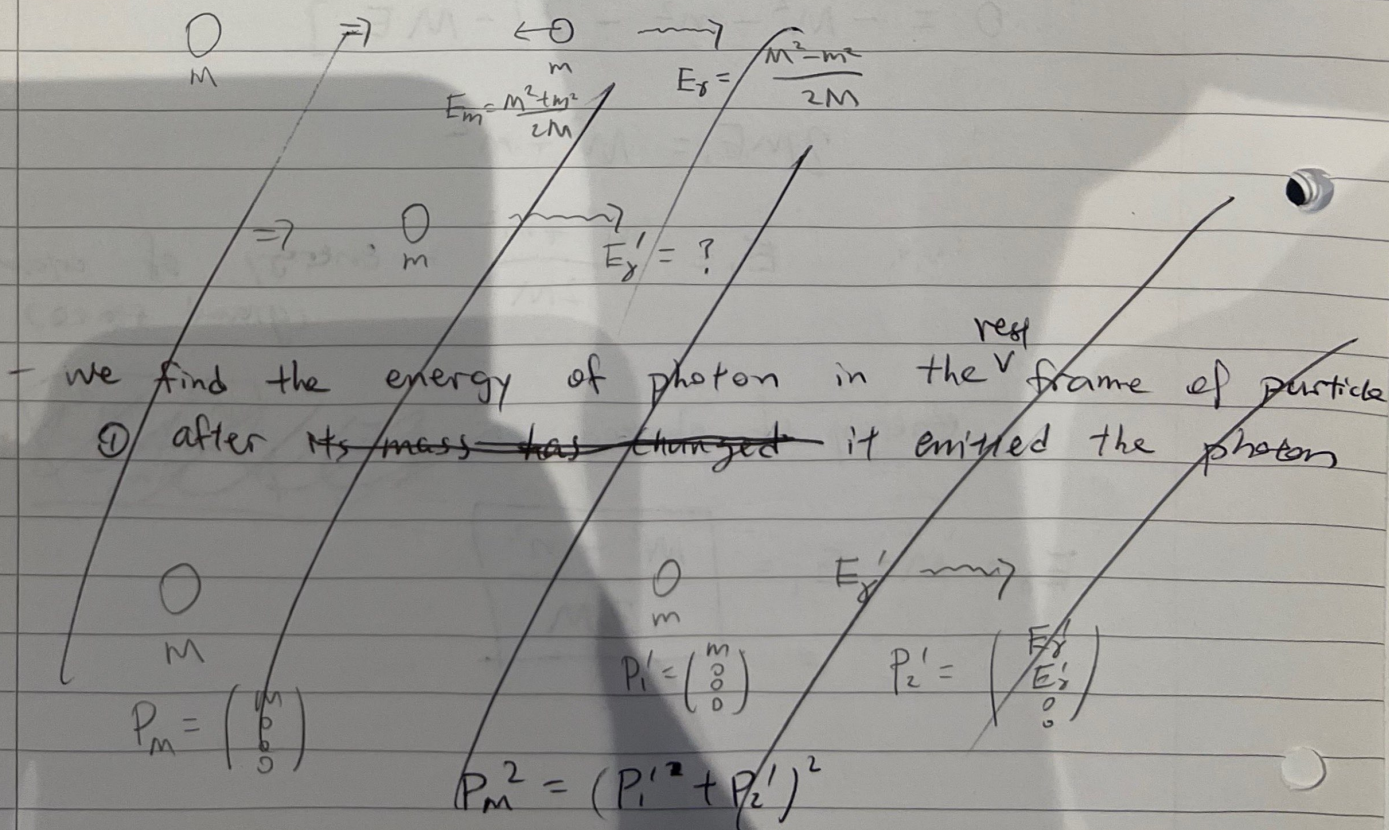 M ⇒ ← m E_m = M²+m² / 2M E_γ = M²-m² / 2M
⇒ m E_γ' = ?
- we find the energy of photon in the rest frame of particle
① after its mass has changed it emitted the photon
M m E_γ'
P_M = (M 0 0 0) P_1' = (m 0 0 0) P_2' = (E_γ' E_γ' 0 0)
P_M² = (P_1'² + P_2')²